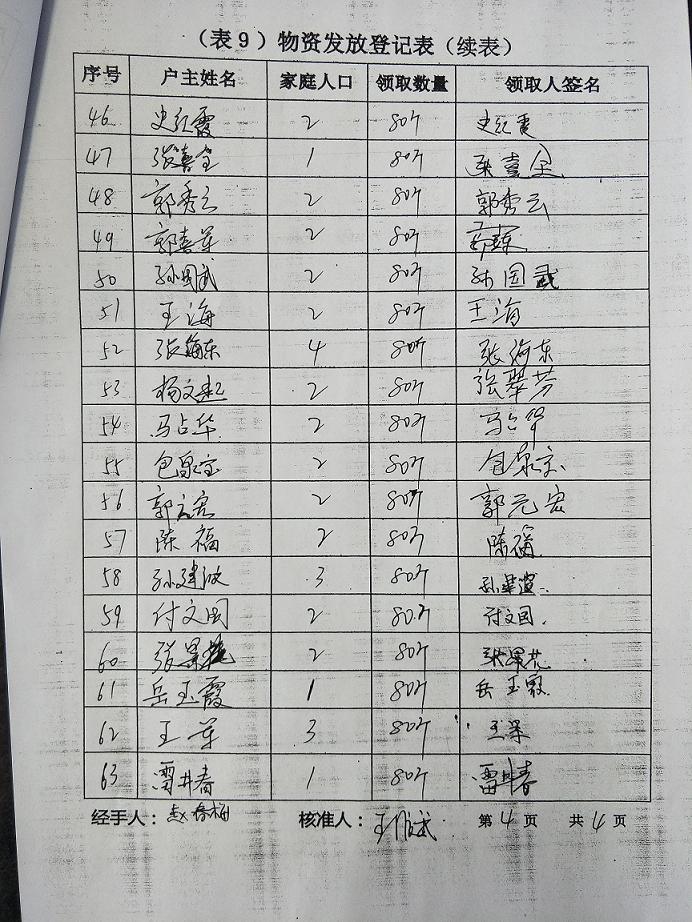 （表9）物资发放登记表（续表）
序号 户主姓名 家庭人口 领取数量 领取人签名
46 史红霞 2 80个 史红霞
47 张喜全 1 80个 张喜全
48 郭秀云 2 80个 郭秀云
49 郭喜军 2 80个
50 孙国武 2 80个 孙国武
51 王海 2 80个 王海
52 张海东 4 80个 张海东
53 杨文起 2 80个 张翠芳
54 马占华 2 80个 马占华
55 包泉宝 2 80个 包泉宝
56 郭元宏 2 80个 郭元宏
57 陈福 2 80个 陈福
58 孙建波 3 80个
59 付文国 2 80个 付文国
60 张景花 2 80个 张景花
61 岳玉霞 1 80个 岳玉霞
62 王军 3 80个 王军
63 雷井春 1 80个 雷井春
经手人：赵春梅 核准人： 第4页 共4页